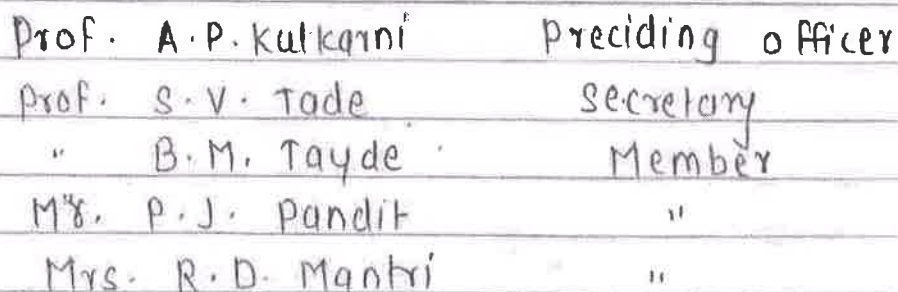 Prof. A.P. Kulkarni Preciding officer
Prof. S.V. Tade Secretary
" B.M. Tayde Member
Mr. P.J. Pandit "
Mrs. R.D. Mantri "